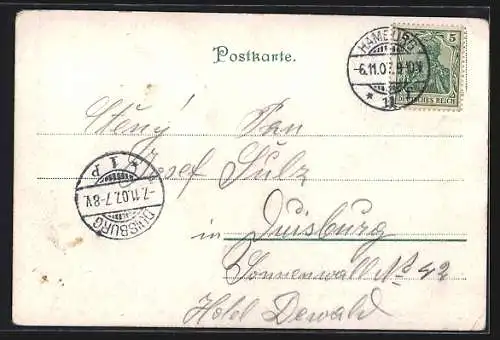 Postkarte.
HAMBURG
-6.11.07. 9-10 V.
* 11 f
5
DEUTSCHES REICH
Ctěný Pan
Josef Sulz
in Duisburg
Sonnenwall No 42
Hotel Dewald
* 1 P
-7.11.07. 7-8 V.
DUISBURG